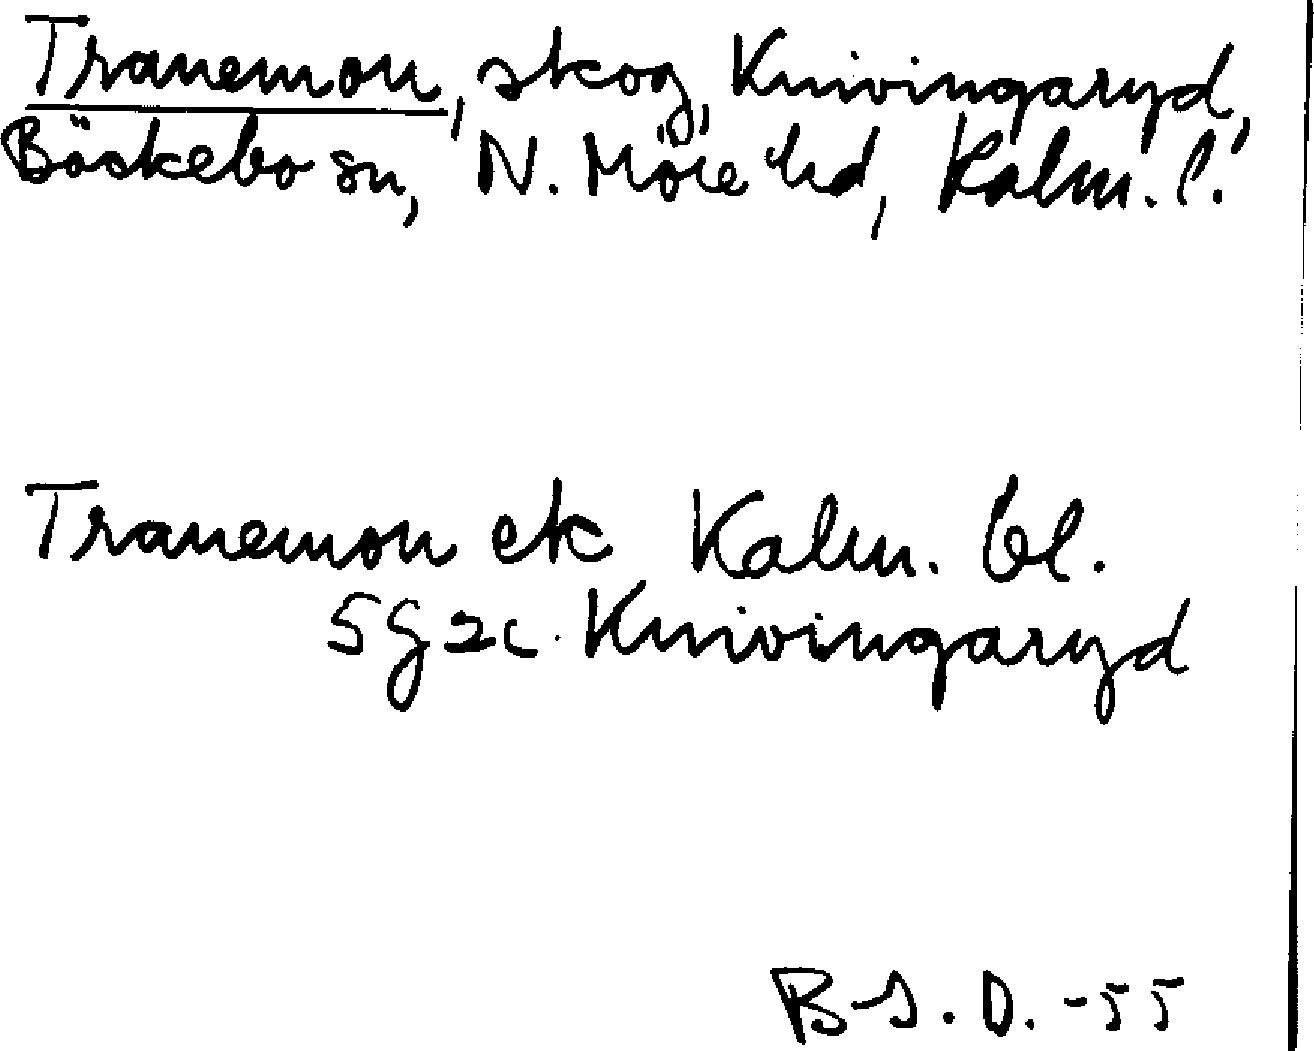 Tranemon, skog, Knivingaryd,
Bäckebo sn, N. Möre hd, Kalm. l.
Tranemon ek Kalm. bl.
5g2c. Knivingaryd
B-J. D. -55